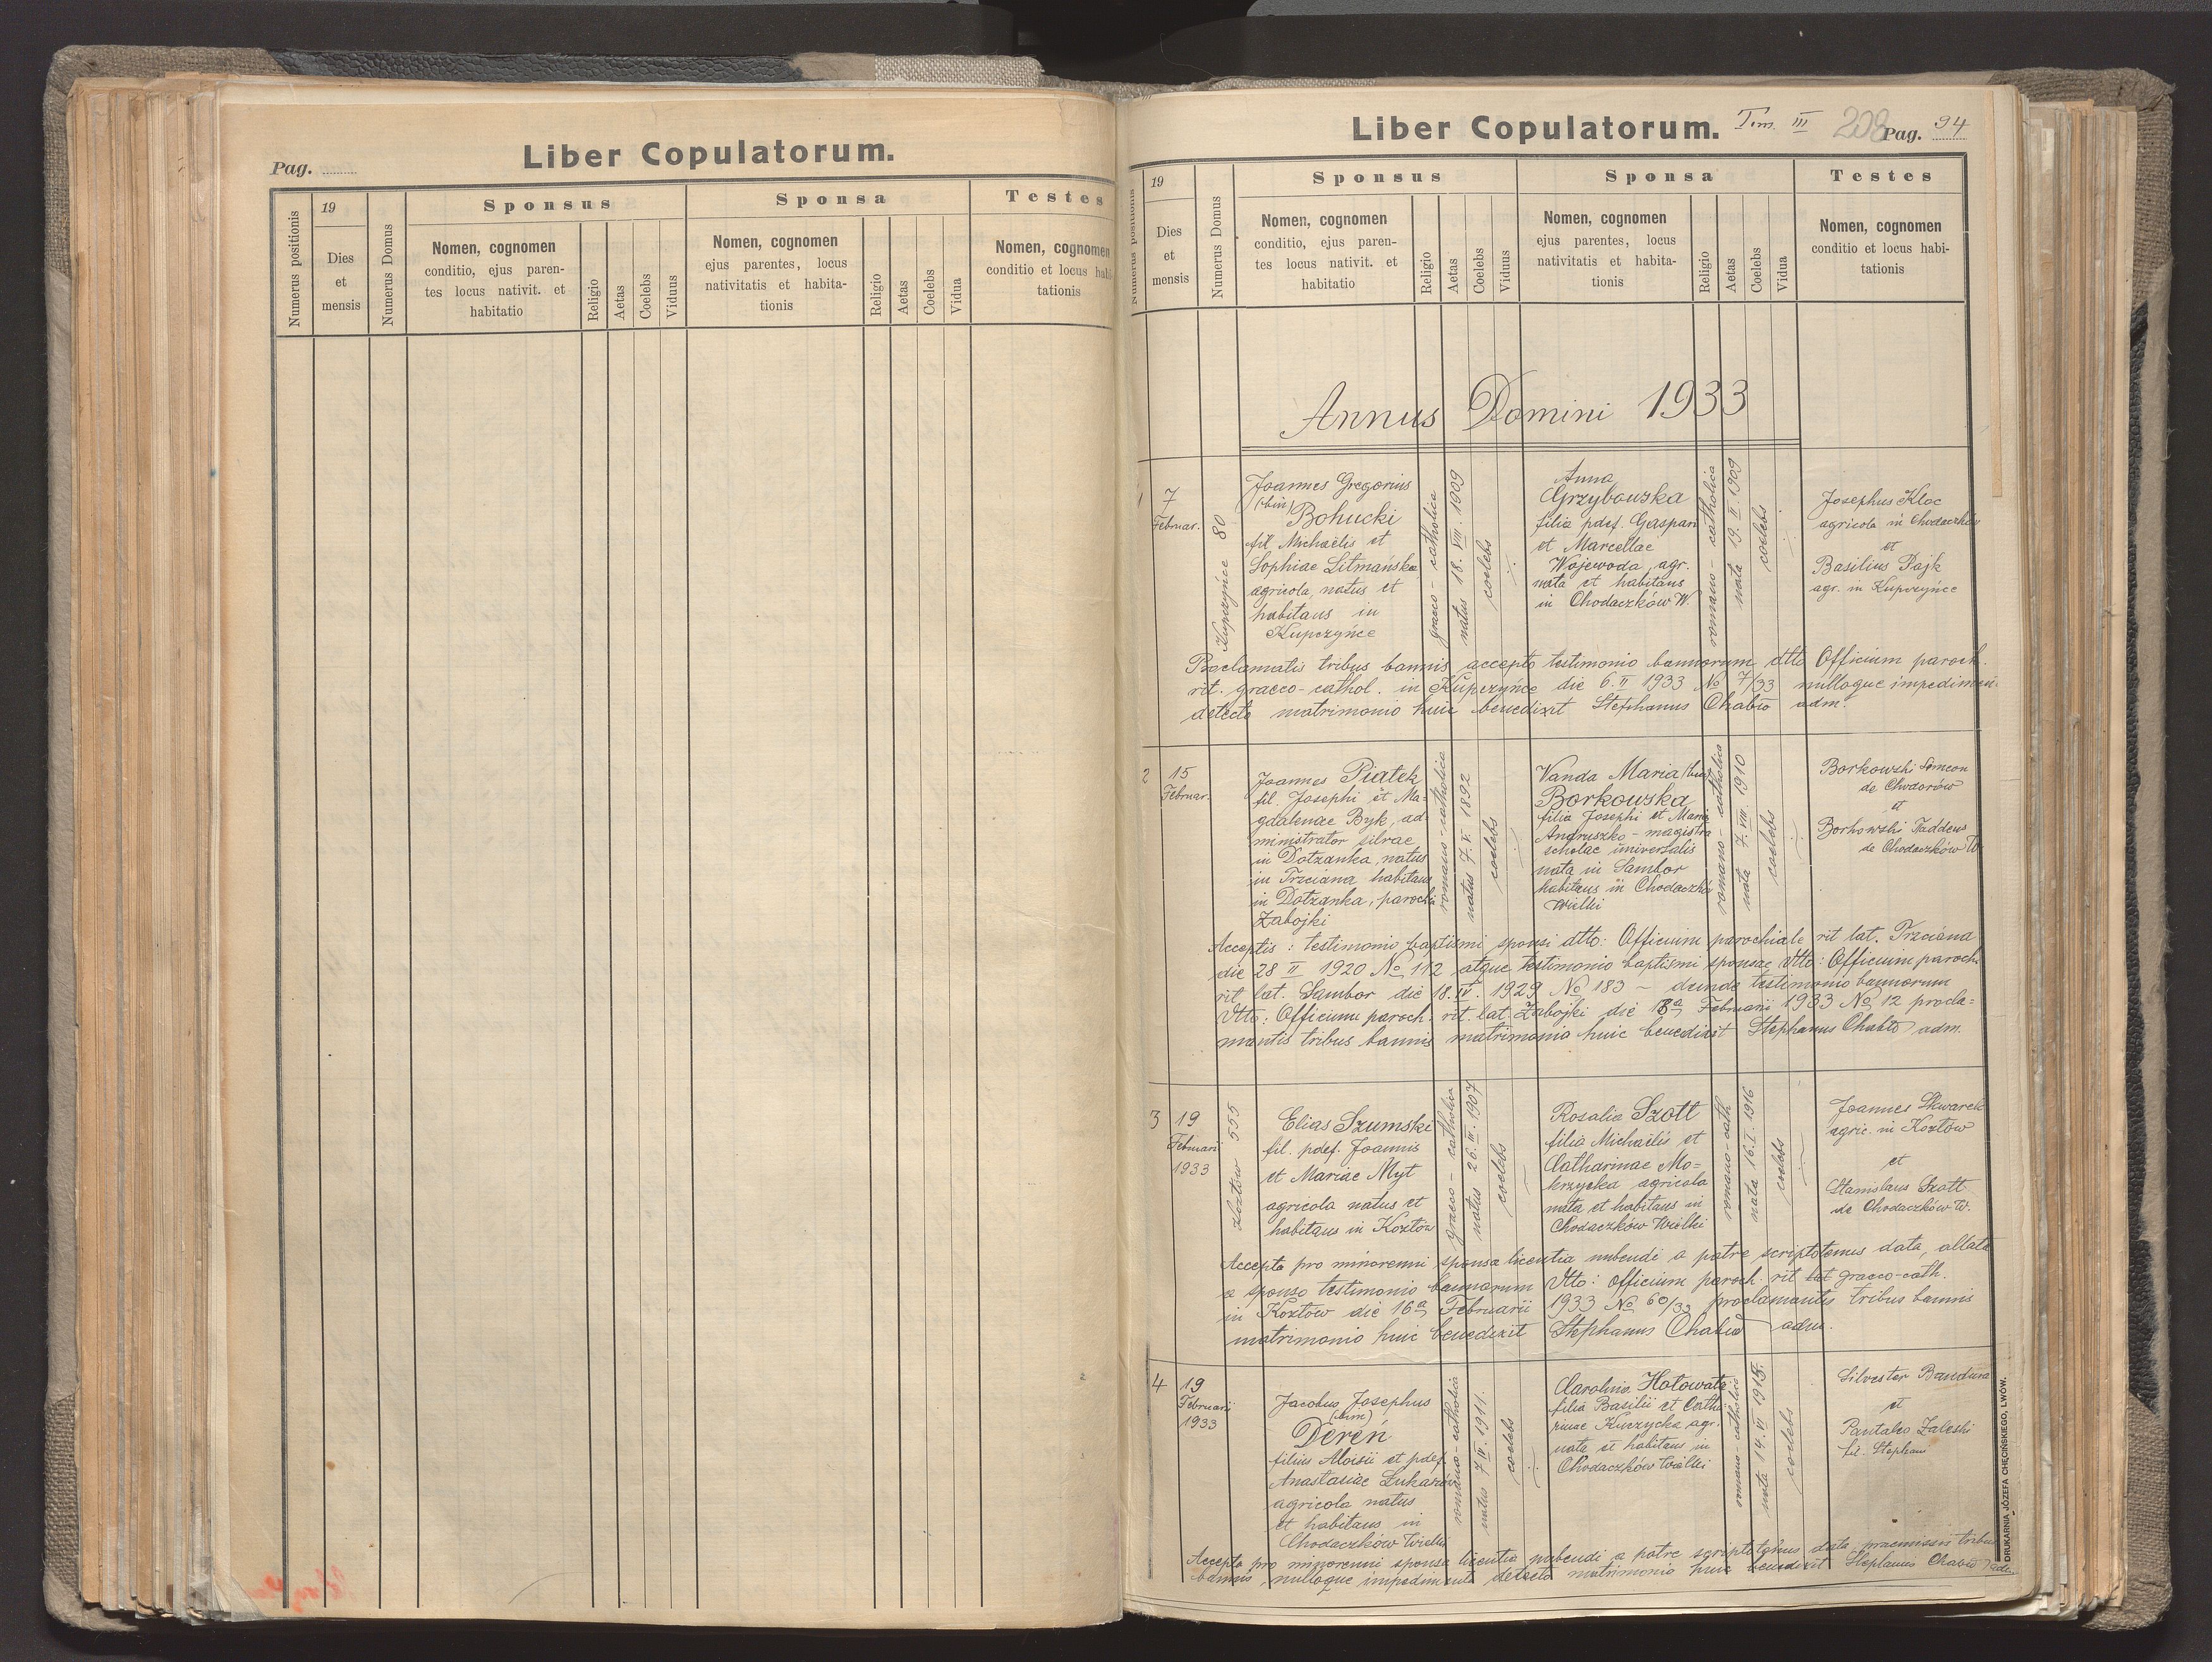 Pag.
Liber Copulatorum.
Numerus positionis
19
Dies
et
mensis
Numerus Domus
Sponsus
Nomen, cognomen
conditio, ejus paren-
tes locus nativit. et
habitatio
Religio
Aetas
Coelebs
Viduus
Sponsa
Nomen, cognomen
ejus parentes, locus
nativitatis et habita-
tionis
Religio
Aetas
Coelebs
Vidua
Testes
Nomen, cognomen
conditio et locus habi
tationis
Liber Copulatorum.
Tom. III
208
Pag. 94
Numerus positionis
19
Dies
et
mensis
Numerus Domus
Sponsus
Nomen, cognomen
conditio, ejus paren-
tes locus nativit. et
habitatio
Religio
Aetas
Coelebs
Viduus
Sponsa
Nomen, cognomen
ejus parentes, locus
nativitatis et habita-
tionis
Religio
Aetas
Coelebs
Vidua
Testes
Nomen, cognomen
conditio et locus habi-
tationis
Annus Domini 1933
1
7
Februar.
Kupczyńce 80
Joannes Gregorius
(bin)
Bohucki
fil Michaelis et
Sophiae Litmańska
agricola, natus et
habitans in
Kupczyńce
graeco-catholica
natus 18. VIII. 1909
coelebs
Anna
Grzybowska
filia pdef. Gaspari
et Marcellae
Wojewoda, agr.
nata et habitans
in Chodaczków W.
romano-catholica
nata 19. II. 1909
coelebs
Josephus Kloc
agricola in Chodaczków
et
Basilius Pajk
agr. in Kupczyńce
Proclamatis tribus bannis accepto testimonio bannorum dtto Officium paroch.
rit. graeco-cathol. in Kupczyńce die 6. II 1933 No 7/33 nulloque impedimen-
detecto matrimonio huic benedixit Stephanus Chabło adm.
2
15
Februar.
Joannes Piątek
fil. Josephi et Ma-
gdalenae Byk, ad-
ministrator silvae
in Dołżanka, natus
in Trzciana habitans
in Dołżanka, parochia
Zabojki
romano-catholica
natus 7. V. 1892
coelebs
Vanda Maria (bin)
Borkowska
filia Josephi et Maria
Andruszko - magistra
scholae universalis
nata in Sambor
habitans in Chodaczków
Wielki
romano-catholica
nata 7. VIII. 1910
coelebs
Borkowski Simeon
de Chodorów
et
Borkowski Taddeus
de Chodaczków W
Acceptis: testimonio baptismi sponsi dtto: Officium parochiale rit lat. Trzciana
die 28 II 1920 No 112 atque testimonio baptismi sponsae dtto: Officium paroch.
rit. lat. Sambor die 18. IV. 1929 No 183 - deinde testimonio bannorum
dtto: Officium paroch. rit. lat. Zabojki die Februarii 1933 No 12 procla=
mantis tribus bannis matrimonio huic benedixit Stephanus Chabło adm.
3
19
Februarii
1933
Kozłów 555
Elias Szumski
fil. pdef. Joannis
et Mariae Myt
agricola natus et
habitans in Kozłów
graeco-catholica
natus 26. III. 1907
coelebs
Rosalia Szott
filia Michaelis et
Catharinae Mo=
krzycka agricola
nata et habitans in
Chodaczków Wielki
romano-cath
nata 16. I. 1916
coelebs
Joannes Skwarek
agric. in Kozłów
et
Stanislaus Szott
de Chodaczków W.
Accepta pro minorenni sponsa licentia nubendi a patre scriptotenus data, allato
a sponso testimonio bannorum dtto: Officium paroch. rit lat graeco-cath.
in Kozłów die 16a Februarii 1933 No 60/33 proclamantis tribus bannis
matrimonio huic benedixit Stephanus Chabło adm.
4
19
Februarii
1933
Jacobus Josephus
(bin)
Dereń
filius Aloisii et pdef.
Anastasiae Łukaszów
agricola natus
et habitans in
Chodaczków Wielki
romano-catholica
natus 7 IV. 1911.
coelebs
Carolina Hołowata
filia Basilii et Catha
rinae Kurzycka agr.
nata et habitans in
Chodaczków Wielki
romano-catholica
nata 14. VI 1915.
coelebs
Silvester Bandura
et
Pantaleo Zaleski
fil. Stephani
Accepta pro minorenni sponsa licentia nubendi a patre scriptotenus data, praemissis tribus
bannis, nulloque impedimento detecto matrimonio huic benedixit Stephanus Chabło adm.
DRUKARNIA JÓZEFA CHĘCIŃSKIEGO, LWÓW.